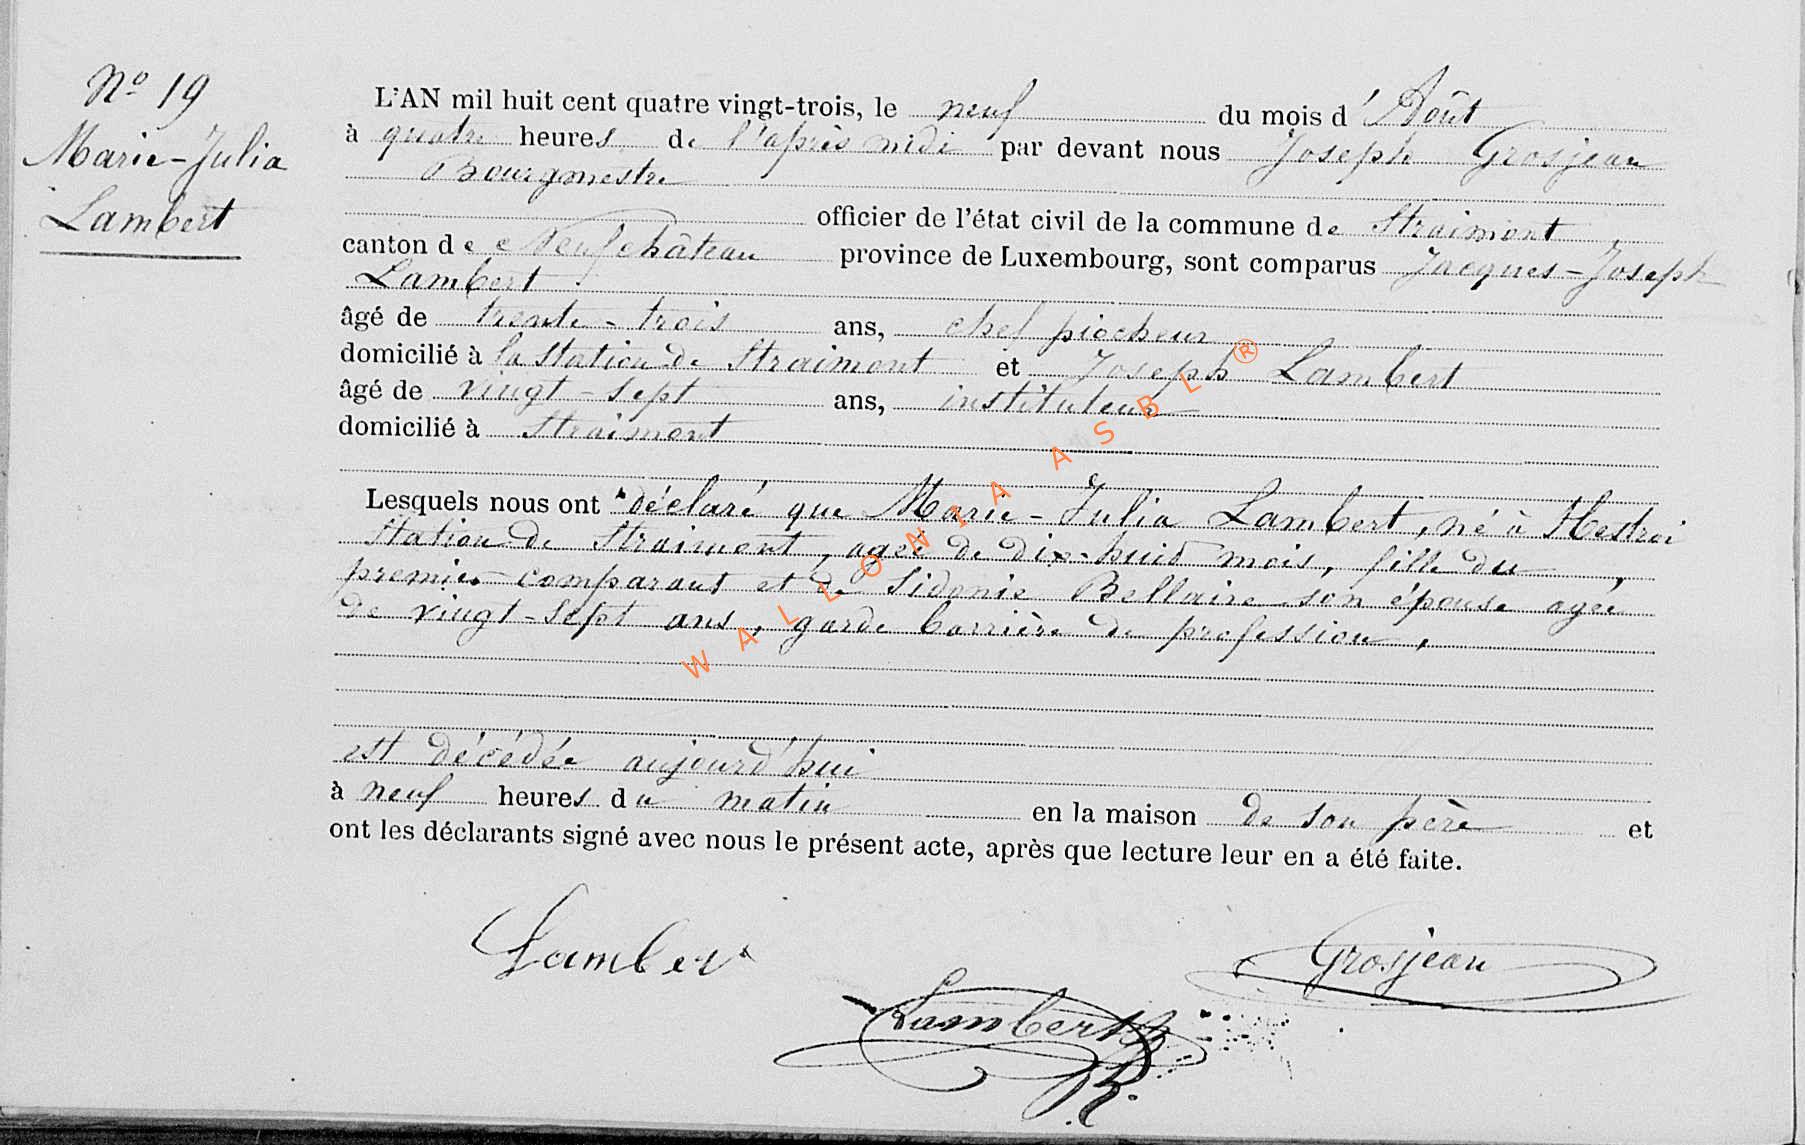 Nº 19
Marie-Julia
Lambert
L'AN mil huit cent quatre vingt-trois, le neuf du mois d'Août
à quatre heures de l'après midi par devant nous Joseph Grosjean
Bourgmestre
officier de l'état civil de la commune de Straimont
canton de Neufchâteau province de Luxembourg, sont comparus Jacques-Joseph
Lambert
âgé de trente-trois ans, chef piocheur
domicilié à la station de Straimont et Joseph Lambert
âgé de vingt-sept ans, instituteur
domicilié à Straimont
Lesquels nous ont déclaré que Marie-Julia Lambert, né à
station de Straimont, agée de dix-huit mois, fille du
premier comparant et de Sidonie Bellaire son épouse agée
de vingt-sept ans, garde barrière de profession,
est décédée aujourd'hui
à neuf heures du matin en la maison de son père et
ont les déclarants signé avec nous le présent acte, après que lecture leur en a été faite.
Lambert
Grosjean
Lambert
WALLONIA ASBL ®